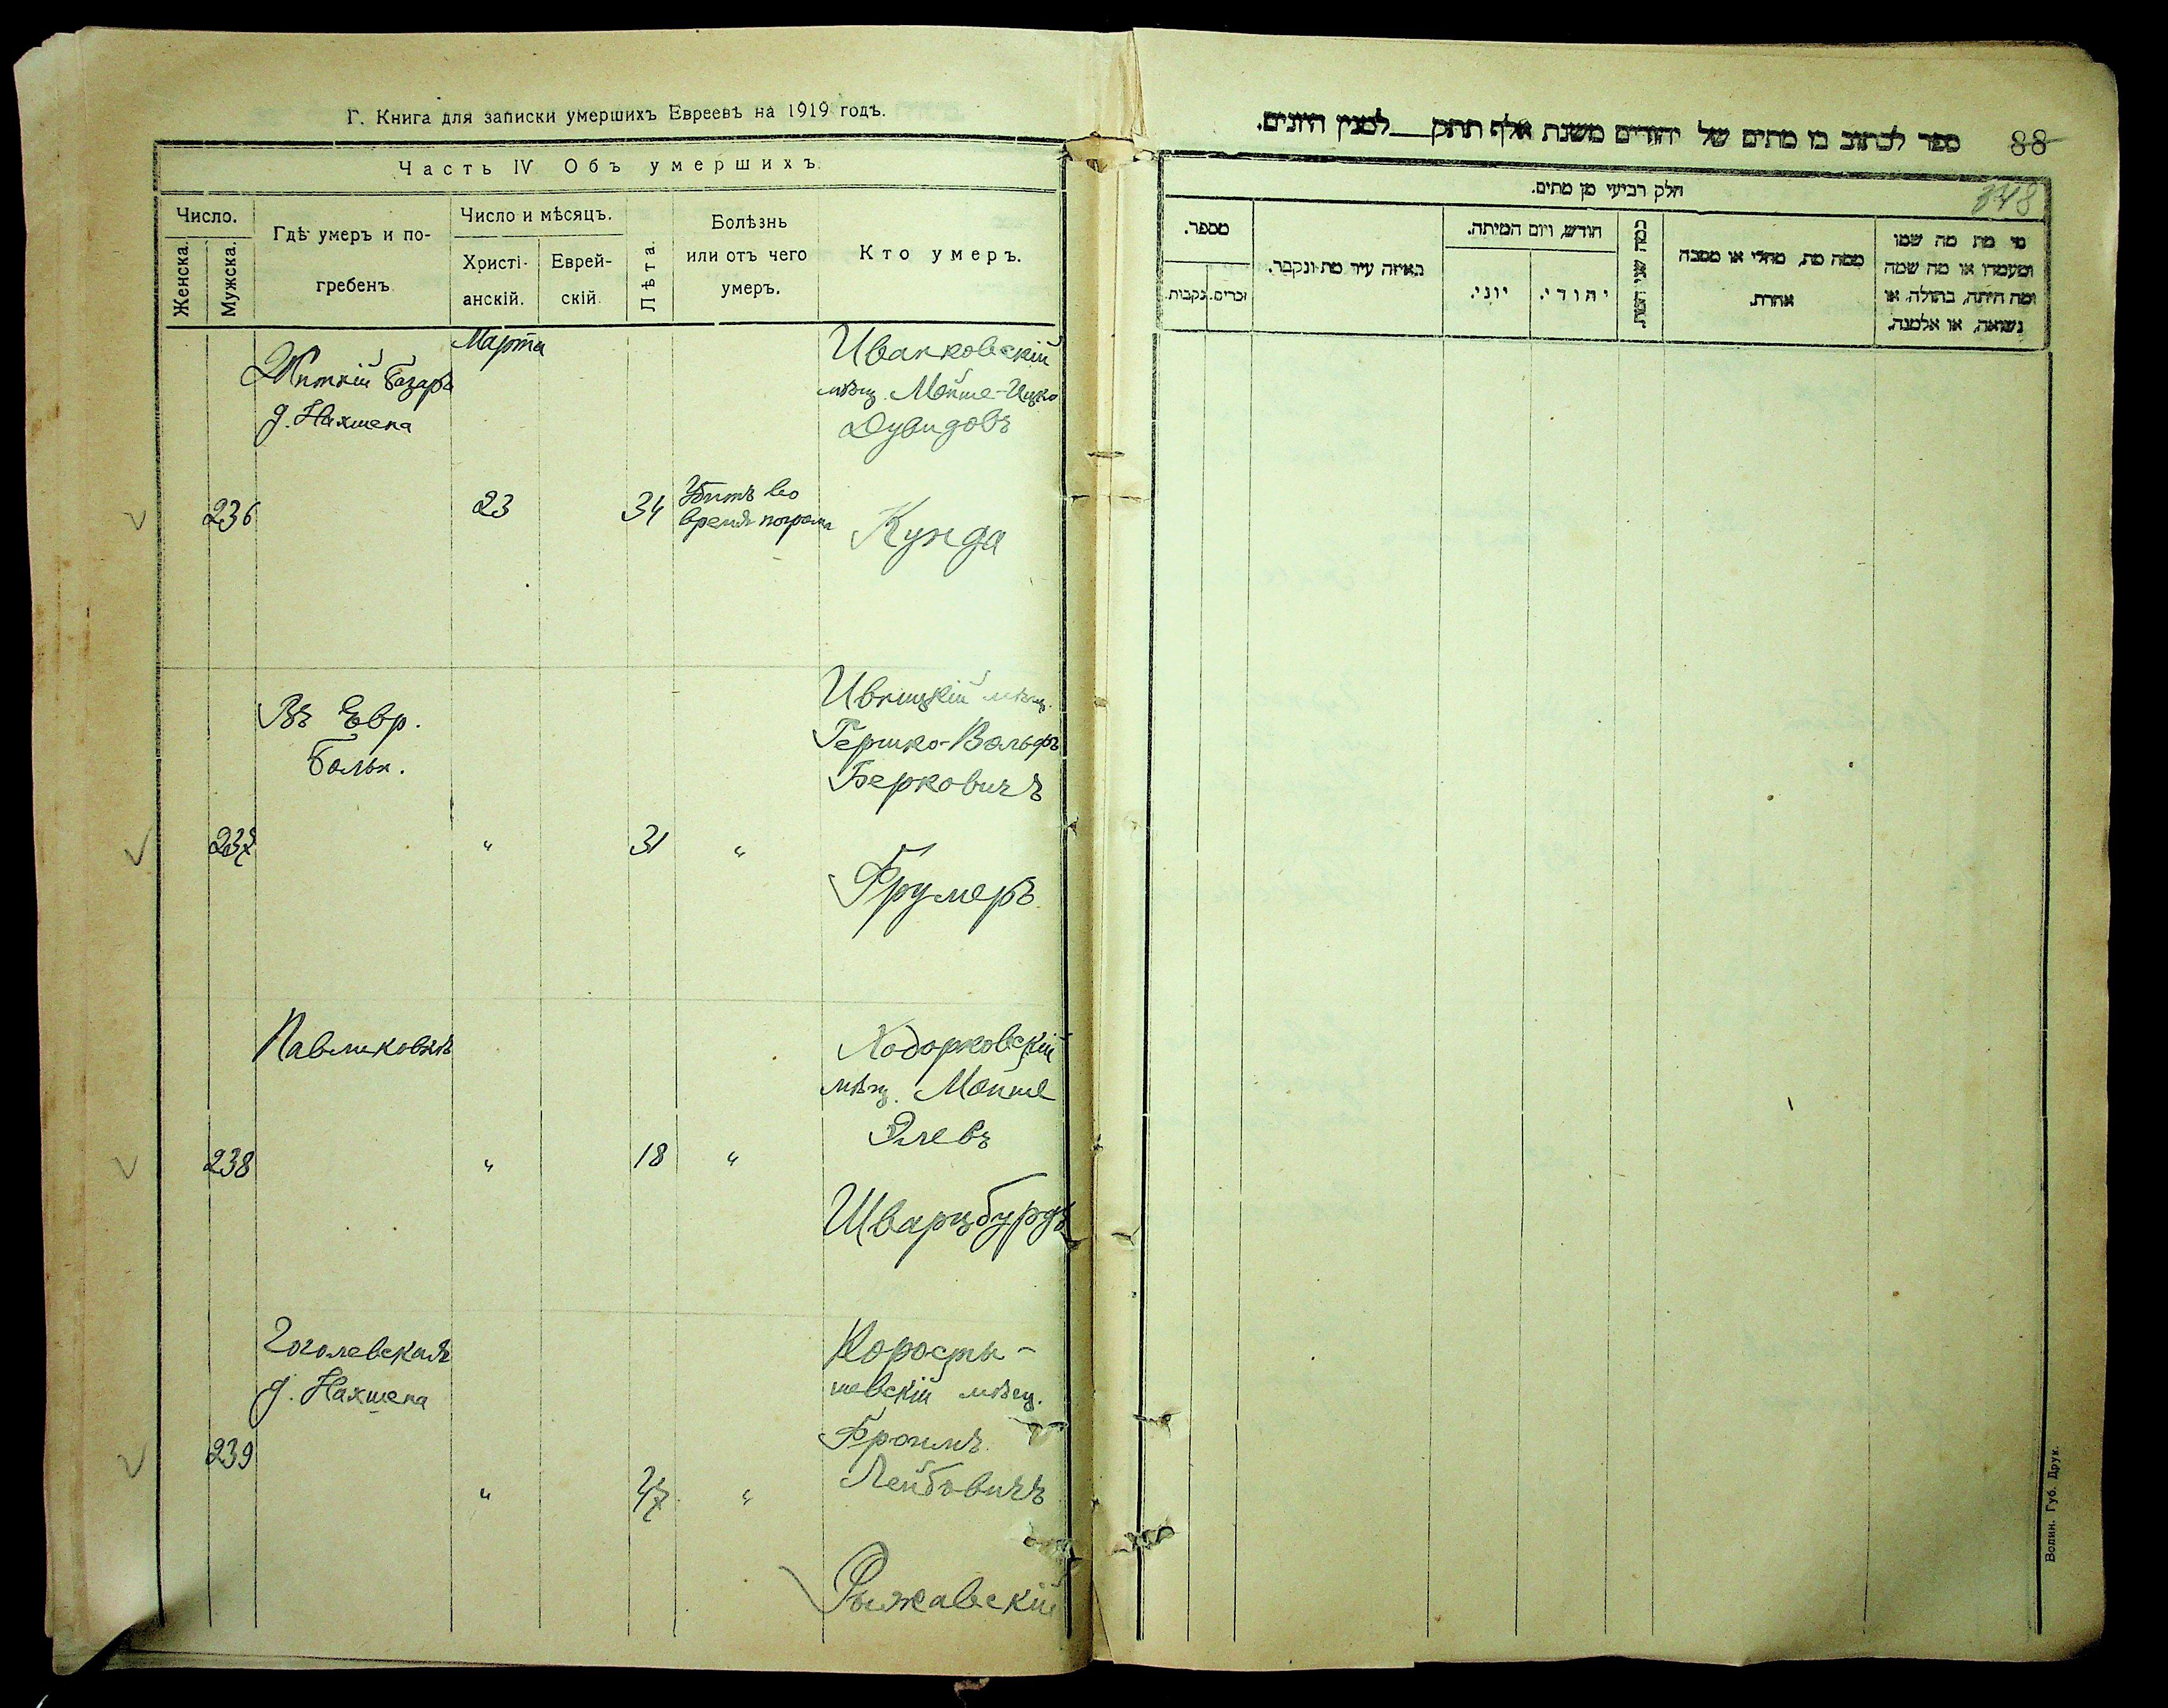 Г. Книга для записки умершихъ Евреевъ на 1919 годъ.
Часть IV Объ умершихъ.
Число.
Женска.
Мужска.
Гдѣ умеръ и по-
гребенъ.
Число и мѣсяцъ.
Христі-
анскій.
Еврей-
скій.
Лѣта.
Болѣзнь
или отъ чего
умеръ.
Кто умеръ.
Марта
Житній базаръ
д. Нахшена
236
23
34
Убитъ во
время погрома
Иванковскій
мѣщ. Мойше-Ицко
Дувидовъ
Кунда
Въ Евр.
больн.
237
"
31
"
Ивницкій мѣщ.
Гершко-Вольфъ
Берковичъ
Брумеръ
Павликовка
238
"
18
"
Ходорковскій
мѣщ. Мойше
Элевъ
Шварцбурдъ
Гоголевская
д. Нахшена
239
"
47
"
Коросты-
шевскій мѣщ.
Броимъ
Лейбовичъ
Рыжавскій
88
ספר לכתוב בו מתים של יהודים משנת אלף תתק__למנין היונים.
348
חלק רביעי מן מתים.
מספר.
נקבות.
זכרים.
באיזה עיר מת ונקבר.
חודש, ויום המיתה.
יוני.
יהודי.
כמה שני חיות.
ממה מת, מחלי או מסבה
אחרת.
מי מת מה שמו
ומעמדו או מה שמה
ומה היתה, בתולה, או
נשואה, או אלמנה.
Волин. Губ. Друк.